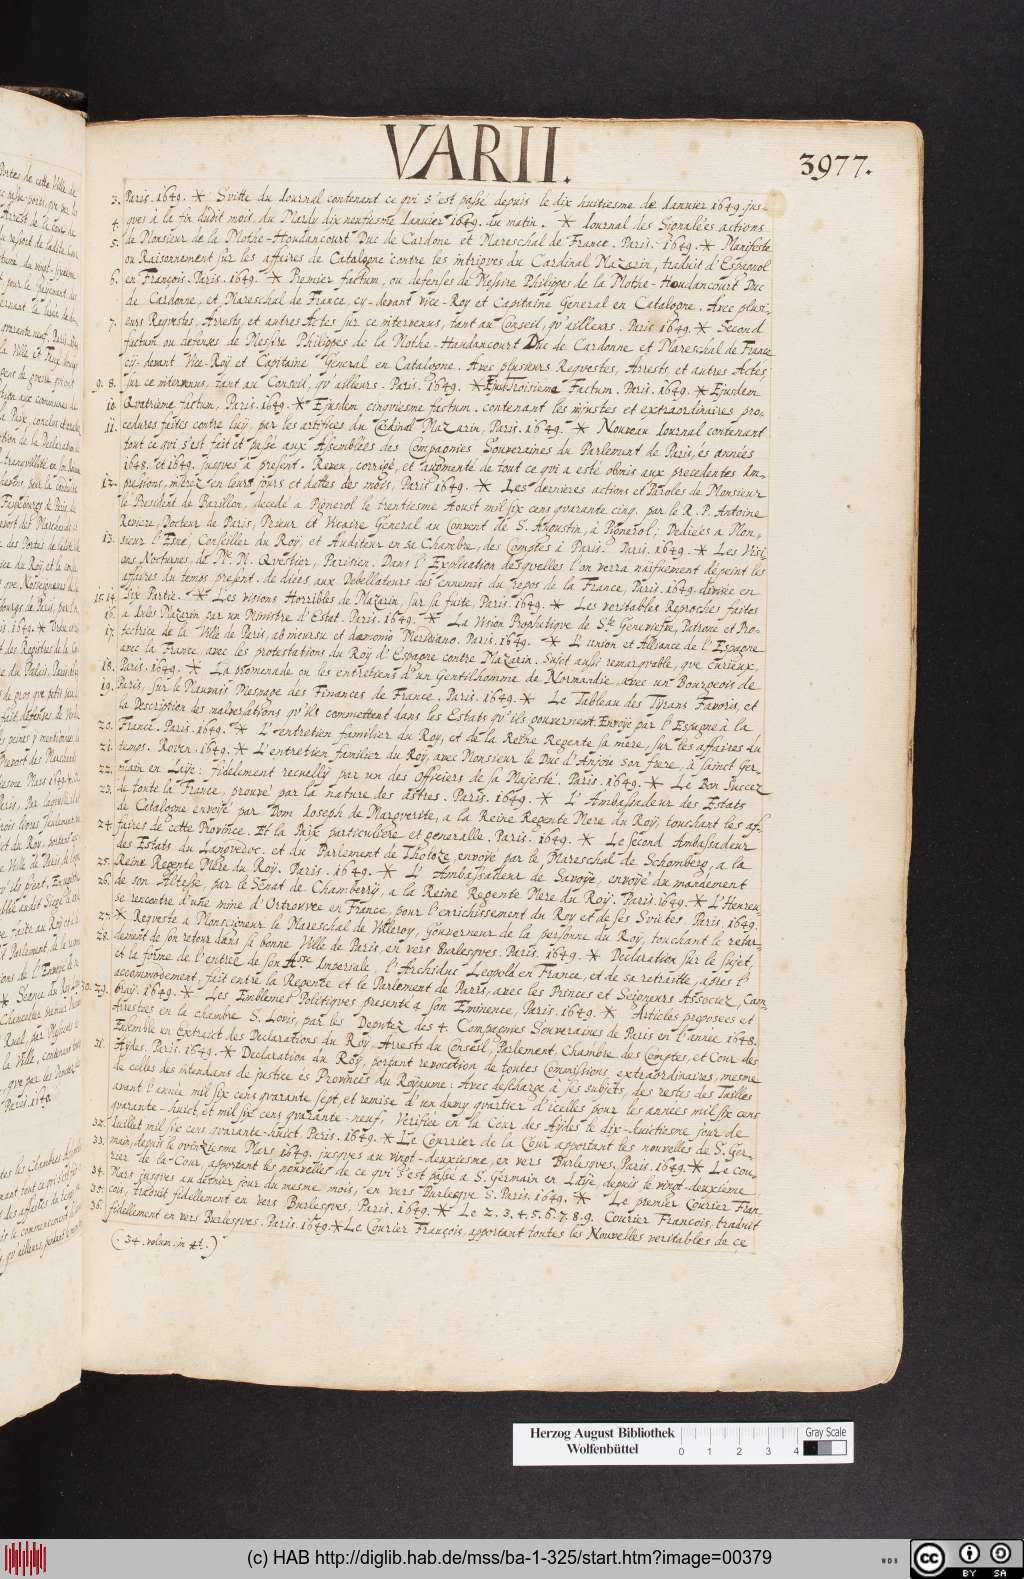 VARII.
3977.
3. Paris. 1649. * Svitte du Iournal contenant ce qvi s'est passe depuis le dix huitiesme de Ianvier 1649 jus-
4. qves à la fin dudit mois, du Mardy dix neufiesme Ianvier 1649. du matin. * Iournal des Signalées actions
5. de Monsieur de la Mothe-Houdancourt Duc de Cardone et Mareschal de France. Paris. 1649. * Manifeste
ou Raisonnement sur les affaires de Catalogne contre les intrigves du Cardinal Mazarin, traduit d'Espagnol
6. en François. Paris. 1649. * Premier factum, ou defenses de Messire Philippes de la Mothe-Houdancourt Duc
de Cardonne, et Mareschal de France, cy-devant Vice-Roy et Capitaine General en Catalogne. Avec plusi-
7. eurs Reqvestes, Arrests, et autres Actes sur ce intervenus, tant au Conseil, qv'ailleurs. Paris 1649. * Second
factum ou defenses de Messire Philippes de la Mothe-Haudancourt Duc de Cardonne et Mareschal de France
cy-devant Vice-Roy et Capitaine General en Catalogne. Avec plusieurs Reqvestes, Arrests et autres Actes,
9. 8. sur ce intervenus, tant au Conseil, qv'ailleurs. Paris. 1649. * Troisieme Factum. Paris. 1649. * Ejusdem
10. Qvatrieme factum, Paris. 1649. * Ejusdem cinqviesme factum. contenant les injustes et extraordinaires pro-
11. cedures faites contre luÿ, par les artifices du Cardinal Mazarin, Paris. 1649. * Nouveau Iournal contenant
tout ce qvi s'est fait et passé aux Assemblées des Compagnies Souveraines du Parlement de Paris, és années
1648. et 1649. jusqves à present. Reveu, corrigé, et augmenté de tout ce qvi a esté obmis aux precedentes Im-
12. pressions, mises en leurs jours et dattes des mois, Paris 1649. * Les dernieres actions et Paroles de Monsieur
le President de Barillon, decedé a Pignerol le trentiesme Aoust mil six cens qvarante cinq. par le R. P. Antoine
Reviere, Docteur de Paris, Prieur et Vicaire General au Convent de S. Augustin, à Pignerol; Dediées a Mon-
13. sieur l'Esné, Conseiller du Roÿ, et Auditeur en sa Chambre, des Comptes à Paris. Paris. 1649. * Les Visi
ons Nocturnes, de Me. M. Qvestier, Parisien. Dans l'Explication desqvelles l'on verra naisuement dépeint les
affaires du temps present. de diées aux Debellateurs des ennemis du repos de la France, Paris. 1649. divisée en
15. 14. Six Partie. * Les visions Horribles de Mazarin, sur sa fuite, Paris. 1649. * Les veritables Reproches faites
16. a Iules Mazarin par un Ministre d'Estat. Paris. 1649. * La Vision Prophetique de Ste Genevieve, Patrone et Pro-
17. tectrice de la Ville de Paris, ab incursu et dæmonio Meridiano. Paris. 1649. * L'union et Alliance de l'Espagne
avec la France, avec les protestations du Roÿ d'Espagne contre Mazarin. Sujet aussi remarqvable, qve Curieux,
18. Paris. 1649. * La promenade ou les entretiens d'un Gentilhomme de Normandie avec un Bourgeois de
19. Paris, sur le Mauvais Mesnage des Finances de France. Paris. 1649. * Le Tableau des Tyrans Favoris, et
la Description des malversations qv'ils commettent dans les Estats qv'ils gouvernent. Envoÿé par l'Espagne à la
20. France. Paris. 1649. * L'entretien familier du Roy, et de la Reine Regente sa mere, sur les affaires du
21. temps. Roven. 1649. * L'entretien familier du Roy, avec Monsieur le Duc d'Anjou son frere, à Sainct Ger-
22. main en Laÿe: fidelement recueilly par un des Officiers de sa Majesté. Paris. 1649. * Le Bon Succez
23. de toute la France, prouvé par la nature des astres. Paris. 1649. * L'Ambassadeur des Estats
de Catalogne envoyé par Dom Ioseph de Margverite, a la Reine Regente Mere du Roÿ, touchant les af-
24. faires de cette Province. Et la Paix particuliere et generalle. Paris. 1649. * Le second Ambassadeur
des Estats du Langvedoc. et du Parlement de Tholoze, envoyé par le Mareschal de Schomberg, a la
25. Reine Regente Mere du Roÿ. Paris. 1649. * L'Ambassadeur de Savoÿe, envoyé du mandement
26. de son Altesse, par le Senat de Chamberrÿ, a la Reine Regente Mere du Roÿ. Paris. 1649. * L'Hereu-
se rencontre d'une mine d'Or trouvée en France, pour l'enrichissement du Roy et de ses Suietes Paris, 1649.
27. * Reqveste a Monseigneur le Mareschal de Villeroy, Gouverneur de la personne du Roÿ, touchant le retar-
28. dement de son retour dans sa bonne Ville de Paris, en vers Burlesqves. Paris. 1649. * Declaration sur le Sujet,
et la forme de l'entrée de son Asse Imperiale, l'Archiduc Leopold en France, et de sa retraitte, apres l'
accommodement, fait entre la Regente et le Parlement de Paris, avec les Princes et Seigneurs Associez, Cam
30. 29. bray. 1649. * Les Emblemes Politiqves, presente a son Eminence, Paris. 1649. * Articles proposees et
Arrestees en la chambre S. Lovis, par les Deputez des 4. Compagnies Souveraines de Paris en l'année 1648.
Ensemble un Extraict des Declarations du Roy, Arrests du Conseil, Parlement, Chambre des Comptes, et Cour des
31. Aÿdes. Paris. 1649. * Declaration du Roy, portant revocation de toutes Commissions, extraordinaires, mesme
de celles des intendans de justice és Provinces du Royaume: Avec descharge à ses subjets, des restes des Tailles
avant l'année mil six cens qvarante sept, et remise d'un demy qvartier d'icelles pour les annees mil six cens
qvarante-huict, et mil six cens qvarante-neuf, Verifiée en la Cour des Aÿdes le dix-huictiesme jour de
32. Iuillet mil six cens qvarante-huict. Paris. 1649. * Le Courrier de la Cour apportant les nouvelles de S. Ger
33. main, depuis le qvinziesme Mars 1649. jusqves au vingt-deuxiesme, en vers Burlesqves, Paris. 1649. * Le Cou-
rier de la Cour, apportant les nouvelles de ce qvi s'est passé a S. Germain en Laÿe depuis le vingt-deuxieme
34. Mars jusqves au dernier jour du mesme mois, en vers Burlesqve S. Paris. 1649. * Le premier Courier Fran-
35. cois, traduit fidellement en vers Burlesqves, Paris. 1649. * Le 2. 3. 4. 5. 6. 7. 8. 9. Courier Francois, traduit
36. fidellement en vers Burlesqves. Paris. 1649. * Le Courier François, apportant toutes les Nouvelles veritables de ce
(. 34. volum. in 4t.)
Herzog August Bibliothek
Wolfenbüttel
0 1 2 3 4
Gray Scale
(c) HAB http://diglib.hab.de/mss/ba-1-325/start.htm?image=00379
WDB
CC BY SA